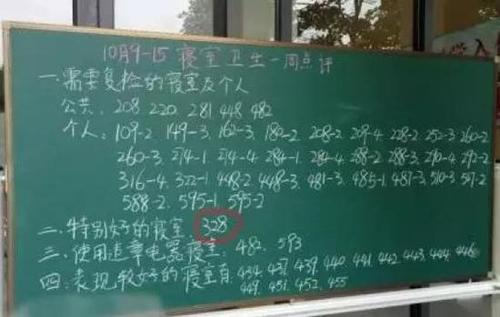 10月9-15 寝室卫生一周点评
一.需要复检的寝室及个人
公共: 208 220. 281 448 482
个人: 109-2 149-3. 162-3 180-2 208-2 209-4 228-2 252-3 260-2
260-3 274-1 274-4 284-1 284-4 288-2 288-3 290-4 292-2
316-4 322-1 448-2 448-3 481-3 485-1 487-3 510-3 517-2
588-2 595-1 595-2
二.特别好的寝室: 328
三.使用违章电器寝室: 482. 593
四:表现较好的寝室有: 434. 437. 439. 440 441. 442. 443. 444. 446
449. 451. 452. 455